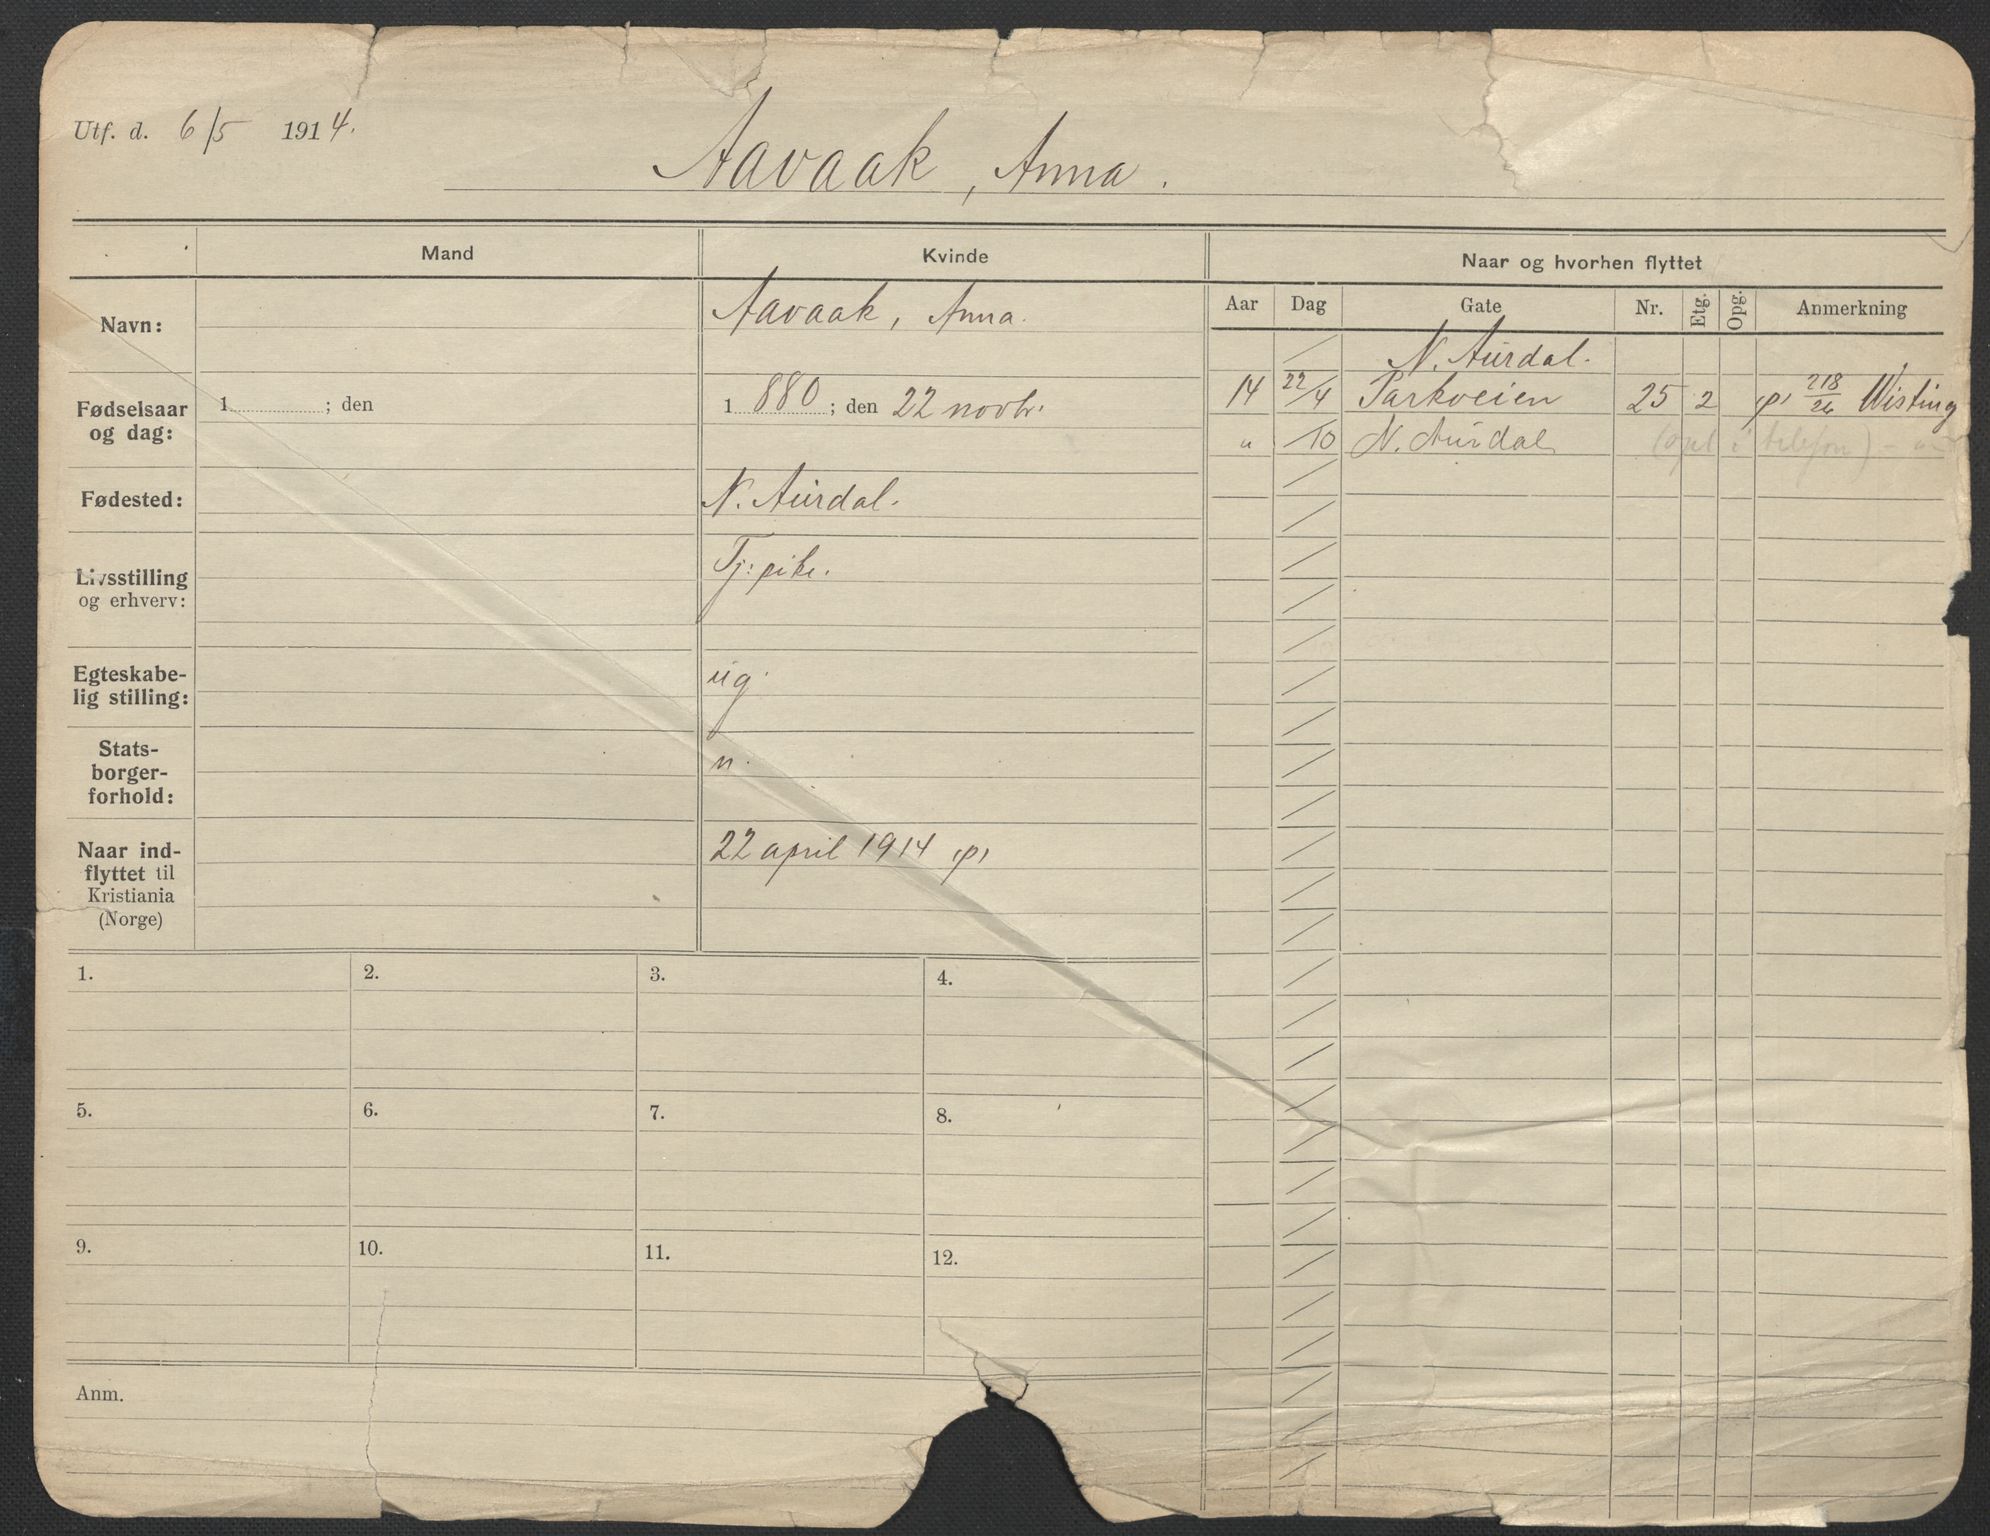 Utf. d. 6/5 1914.
Aavaak, Anna.
Mand
Kvinde
Naar og hvorhen flyttet
Aar Dag Gate Nr. Etg. Opg. Anmerkning
Navn:
Aavaak, Anna.
Fødselsaar
og dag:
1 ; den
1 880 ; den 22 novbr.
Fødested:
N. Aurdal.
Livsstilling
og erhverv:
Tj: pike.
Egteskabe-
lig stilling:
ug.
Stats-
borger-
forhold:
n.
Naar ind-
flyttet til
Kristiania
(Norge)
22 april 1914
N. Aurdal.
14 22/4 Parkveien 25 2 218/26 Wisting
" /10 N. Aurdal (opl i telefon)
1.
2.
3.
4.
5.
6.
7.
8.
9.
10.
11.
12.
Anm.